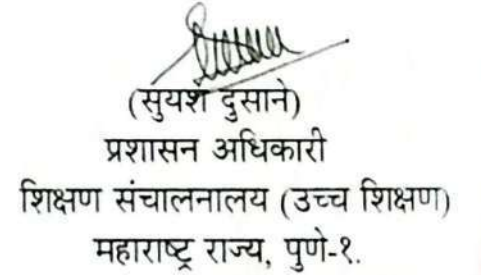 (सुयश दुसाने)
प्रशासन अधिकारी
शिक्षण संचालनालय (उच्च शिक्षण)
महाराष्ट्र राज्य, पुणे-१.